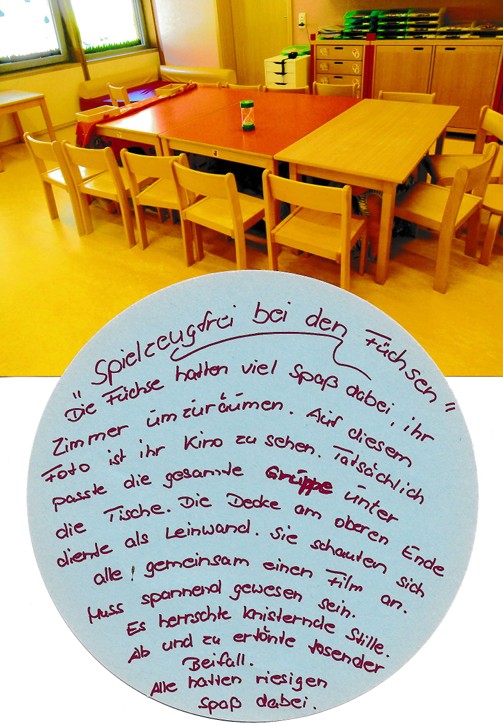 "Spielzeugfrei bei den Füchsen"
Die Füchse hatten viel Spaß dabei, ihr
Zimmer umzuräumen. Auf diesem
Foto ist ihr Kino zu sehen. Tatsächlich
passte die gesamte Gruppe unter
die Tische. Die Decke am oberen Ende
diente als Leinwand. Sie schauten sich
alle gemeinsam einen Film an.
Muss spannend gewesen sein.
Es herrschte knisternde Stille.
Ab und zu ertönte tosender
Beifall.
Alle hatten riesigen
Spaß dabei.